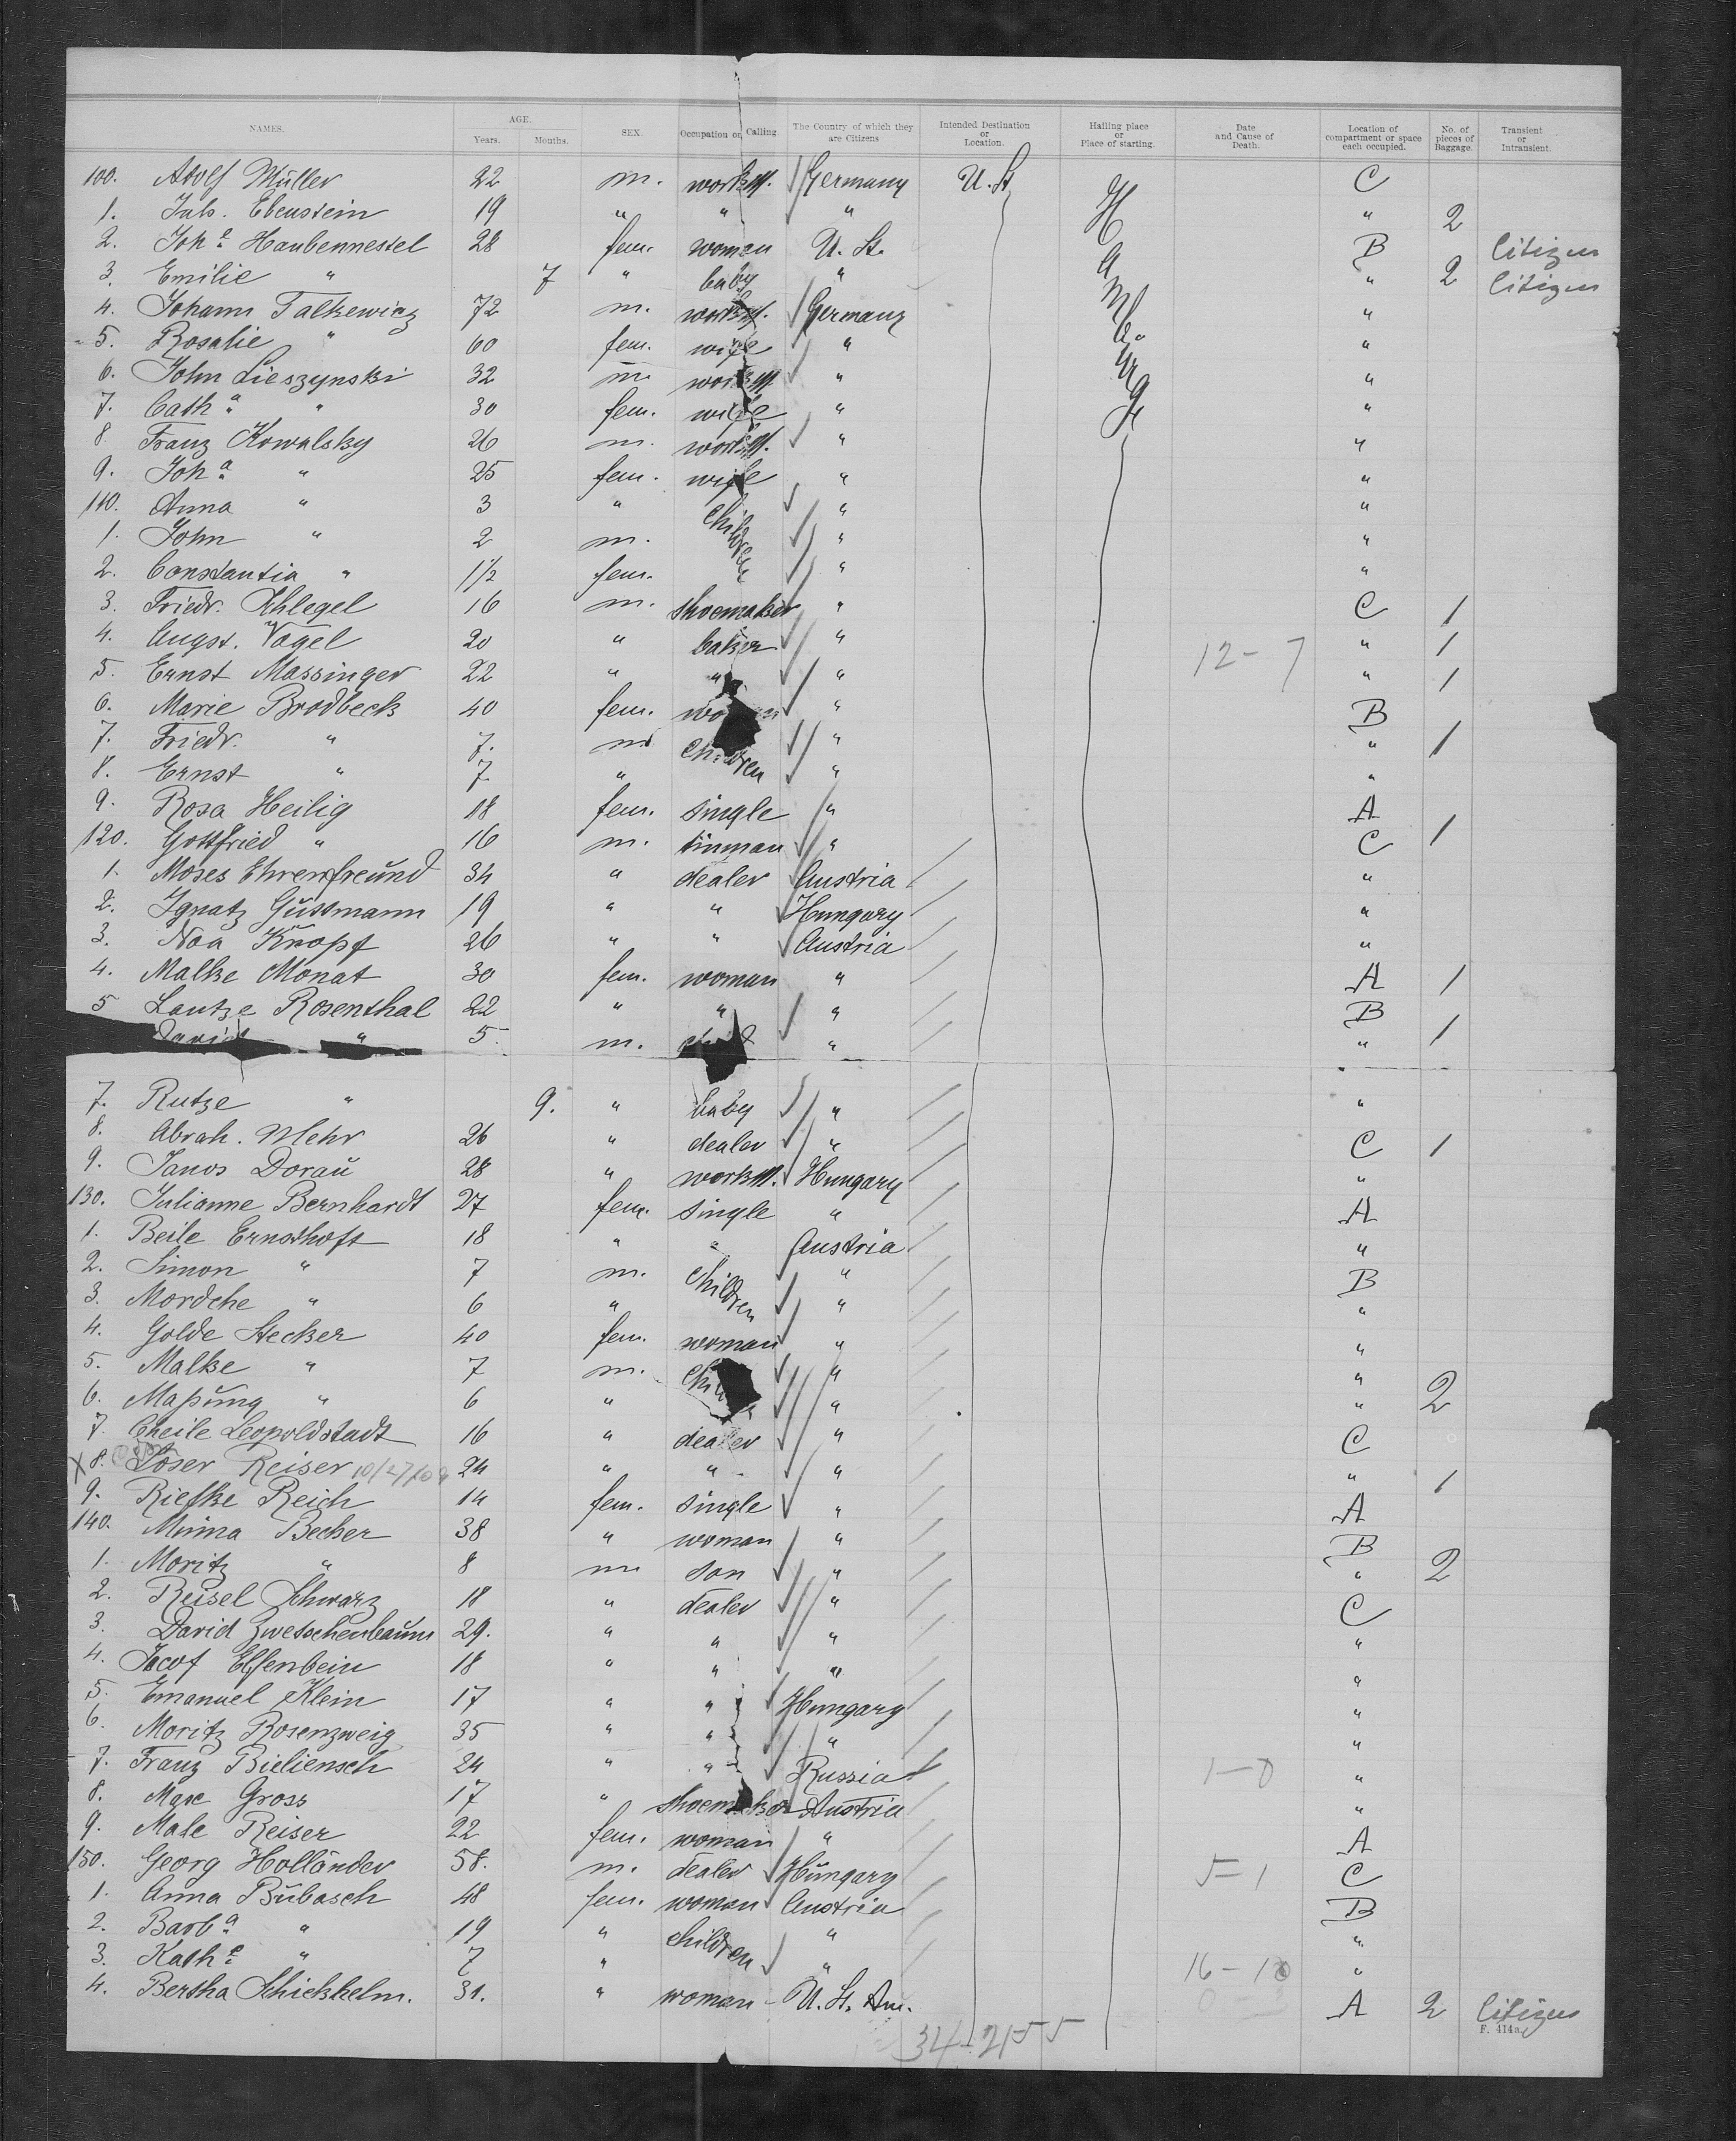 NAMES. AGE. Years. Months. SEX. Occupation or Calling. The Country of which they are Citizens Intended Destination or Location. Hailing place or Place of starting. Date and Cause of Death. Location of compartment or space each occupied. No. of pieces of Baggage. Transient or Intransient.
100. Adolf Müller 22 m. workm. Germany U. St. Hamburg C
1. Juls. Ebenstein 19 " " " " 2
2. Joh.e Haubennestel 28 fem. woman U. St. B Citizen
3. Emilie " 7 " baby " " 2 Citizen
4. Johann Falkewicz 72 m. workm. Germany "
5. Rosalie " 60 fem. wife " "
6. John Lieszynski 32 m. workm. " "
7. Cath.a " 30 fem. wife " "
8. Franz Kowalsky 26 m. workm. " "
9. Joh.a " 25 fem. wife " "
110. Anna " 3 " children " "
1. John " 2 m. " "
2. Constantia " 1½ fem. " "
3. Friedr. Ehlegel 16 m. shoemaker " C 1
4. Augst. Vogel 20 " baker " 12-7 " 1
5. Ernst Massinger 22 " " " " 1
6. Marie Brodbeck 40 fem. woman " B
7. Friedr. " 7. m. children " " 1
8. Ernst " 7 " " "
9. Rosa Heilig 18 fem. single " A
120. Gottfried " 16 m. tinman " C 1
1. Moses Ehrenfreund 34 " dealer Austria "
2. Ignatz Gussmann 19 " " Hungary "
3. Noa Knopf 26 " " Austria "
4. Malke Monat 30 fem. woman " A 1
5 Lautze Rosenthal 22 " " " B
David " 5. m. child " " 1
7. Rutze " 9. " baby " "
8. Abrah. Mehr 26 " dealer " C 1
9. Janos Dorau 28 " workm. Hungary "
130. Julianne Bernhardt 27 fem. single " A
1. Beile Ernsthoft 18 " " Austria "
2. Simon " 7 m. children " B
3. Mordche " 6 " " "
4. Golde Stecker 40 fem. woman " "
5. Malke " 7 m. " "
6. Maßung " 6 " " " 2
7. Cheile Leopoldstadt 16 " dealer " C
X 8. Loser Reiser 24 " " " " 1
9. Riefke Reich 14 fem. single " A
140. Minna Becher 38 " woman " B
1. Moritz " 8 m son " " 2
2. Reisel Schwarz 18 " dealer " C
3. David Zwetschenbaum 29. " " " "
4. Jacof Elfenbein 18 " " " "
5. Emanuel Klein 17 " " Hungary "
6. Moritz Rosenzweig 35 " " " "
7. Franz Bieliensch 24 " " Russia 1-0 "
8. Max Gross 17 " shoemaker Austria "
9. Male Reiser 22 fem. woman " A
150. Georg Holländer 58. m. dealer Hungary 5-1 C
1. Anna Bubasch 48 fem. woman Austria B
2. Barb.a " 19 " children " "
3. Kath.e " 7 " " 16-10 "
4. Bertha Schickhelm. 31. " woman U. St. Am. A 2 Citizen
F. 414a